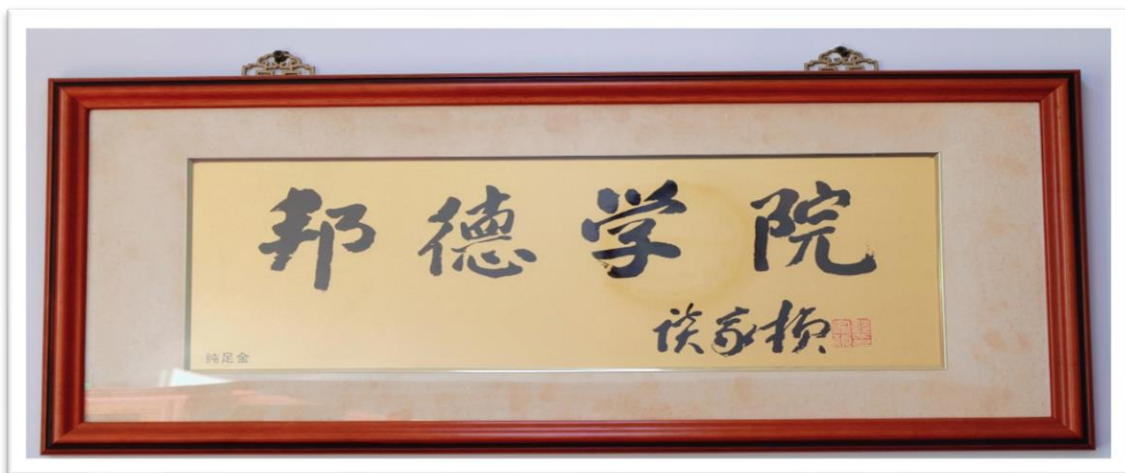 邦德学院
谈家桢
纯足金